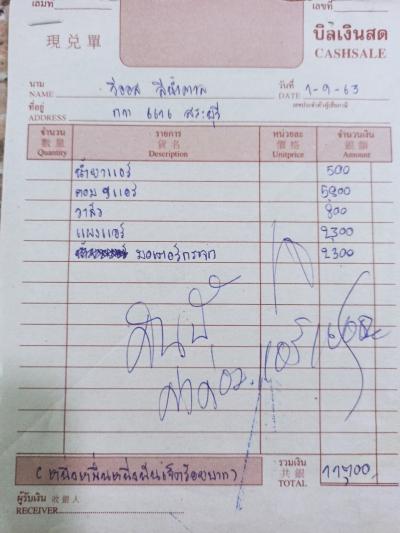 เล่มที่ เลขที่
現兑單 บิลเงินสด
CASHSALE
นาม
NAME วันที่
DATE 1-9-63
เลขประจำตัวผู้เสียภาษี
ที่อยู่
ADDRESS กกา 6616 สระบุรี
จำนวน รายการ หน่วยละ จำนวนเงิน
數量 貨名 價格 銀額
Quantity Description Unitprice Amount
น้ำยาแอร์ 500
คอมแอร์ 5800
วาล์ว 800
แผงแอร์ 2300
มอเตอร์กระจก 2300
(หนึ่งหมื่นหนึ่งพันเจ็ดร้อยบาท) รวมเงิน
共銀
TOTAL 11700
ผู้รับเงิน 收銀人
RECEIVER